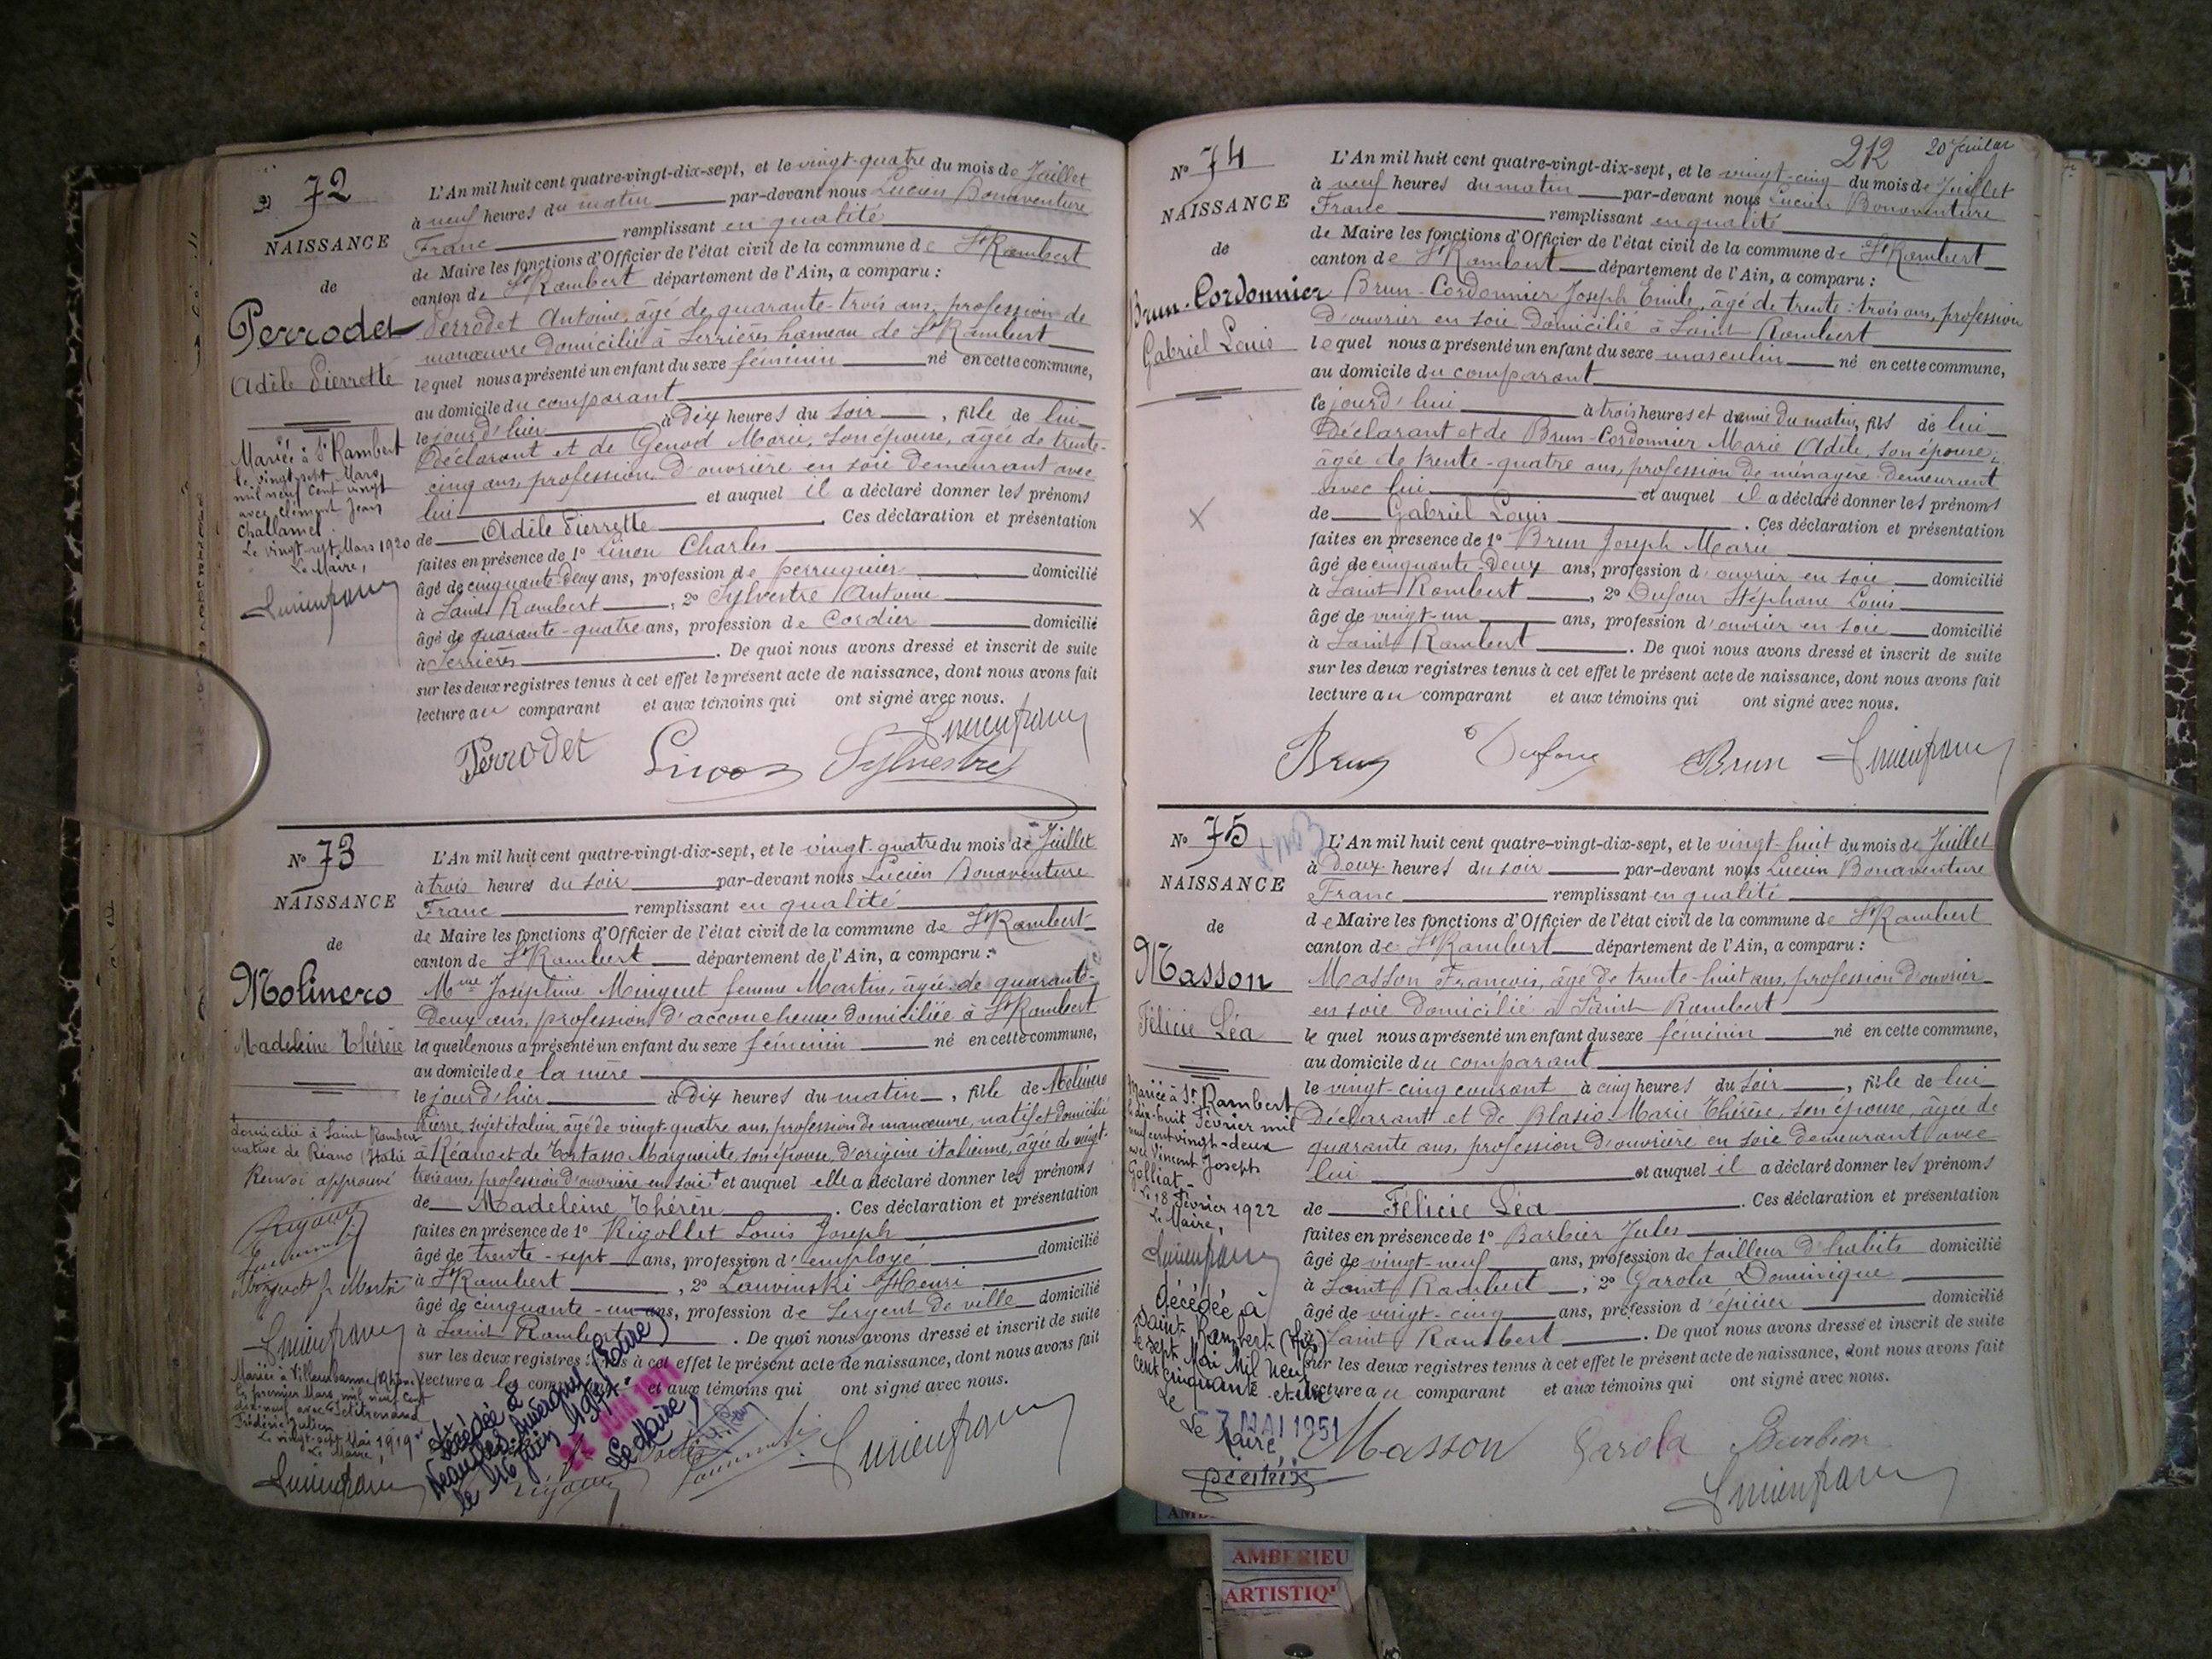 72
NAISSANCE
de
Perrodet
Adèle Pierrette
Mariée à St Rambert
le vingt-sept Mars
mil neuf cent vingt
avec Clément Jean
Challamel.
Le vingt-sept Mars 1920
Le Maire,
Lucien franc
L'An mil huit cent quatre-vingt-dix-sept, et le vingt-quatre du mois de Juillet
à neuf heures du matin par-devant nous Lucien Bonaventure
Franc remplissant en qualité
de Maire les fonctions d'Officier de l'état civil de la commune de St Rambert
canton de St Rambert département de l'Ain, a comparu :
Perrodet Antoine, âgé de quarante-trois ans, profession de
manœuvre domicilié à Serrières hameau de St Rambert
lequel nous a présenté un enfant du sexe féminin né en cette commune,
au domicile du comparant
le jour d'hier à dix heures du soir, fille de lui
Déclarant et de Genod Marie, son épouse, âgée de trente-
cinq ans, profession d'ouvrière en soie demeurant avec
lui et auquel il a déclaré donner les prénoms
de Adèle Pierrette. Ces déclaration et présentation
faites en présence de 1° Linou Charles
âgé de cinquante-deux ans, profession de perruquier domicilié
à Saint Rambert, 2° Sylvestre Antoine
âgé de quarante-quatre ans, profession de Cordier domicilié
à Serrières. De quoi nous avons dressé et inscrit de suite
sur les deux registres tenus à cet effet le présent acte de naissance, dont nous avons fait
lecture au comparant et aux témoins qui ont signé avec nous.
Lucien franc
Perrodet Sylvestre
No 73
NAISSANCE
de
Molinero
Madeleine Thérèse
domicilié à Saint Rambert
native de Réano Italie
Renvoi approuvé
Minguet fe Martin
Lucien franc
Mariée à Villeurbanne (Rhône)
le premier Mars mil neuf cent
dix-neuf avec
Frédéric Julien
Le vingt-sept Mai 1919
Le Maire,
Lucien franc
L'An mil huit cent quatre-vingt-dix-sept, et le vingt-quatre du mois de Juillet
à trois heures du soir par-devant nous Lucien Bonaventure
Franc remplissant en qualité
de Maire les fonctions d'Officier de l'état civil de la commune de St Rambert
canton de St Rambert département de l'Ain, a comparu :
Mme Joséphine Minguet femme Martin, âgée de quarante-
deux ans, profession d'accoucheuse domiciliée à St Rambert
laquelle nous a présenté un enfant du sexe féminin né en cette commune,
au domicile de la mère
le jour d'hier à dix heures du matin, fille de Molinero
Pierre, sujet italien, âgé de vingt-quatre ans, profession de manœuvre, natif et domicilié
à Réano et de Tortasso Marguerite, son épouse d'origine italienne, âgée de vingt-
trois ans, profession d'ouvrière en soie et auquel elle a déclaré donner les prénoms
de Madeleine Thérèse. Ces déclaration et présentation
faites en présence de 1° Rigollet Louis Joseph
âgé de trente-sept ans, profession d'employé domicilié
à St Rambert, 2° Lauvinski Henri
âgé de cinquante-un ans, profession de Sergent de ville domicilié
à Saint Rambert. De quoi nous avons dressé et inscrit de suite
sur les deux registres à cet effet le présent acte de naissance, dont nous avons fait
lecture a les et aux témoins qui ont signé avec nous.
Décédée à
(Loire)
le 16 juin 1971
22 JUIN 1971
Le Maire,
Lucien franc
212 20 Juillet
No 74
NAISSANCE
de
Brun-Cordonnier
Gabriel Louis
X
L'An mil huit cent quatre-vingt-dix-sept, et le vingt-cinq du mois de Juillet
à neuf heures du matin par-devant nous Lucien Bonaventure
Franc remplissant en qualité
de Maire les fonctions d'Officier de l'état civil de la commune de St Rambert
canton de St Rambert département de l'Ain, a comparu :
Brun-Cordonnier Joseph Emile, âgé de trente-trois ans, profession
d'ouvrier en soie domicilié à Saint Rambert
lequel nous a présenté un enfant du sexe masculin né en cette commune,
au domicile du comparant
le jour d'hui à trois heures et demie du matin, fils de lui
Déclarant et de Brun-Cordonnier Marie Adèle, son épouse,
âgée de trente-quatre ans, profession de ménagère demeurant
avec lui et auquel il a déclaré donner les prénoms
de Gabriel Louis. Ces déclaration et présentation
faites en présence de 1° Brun Joseph Marie
âgé de cinquante-deux ans, profession d'ouvrier en soie domicilié
à Saint Rambert, 2° Dufour Stéphane Louis
âgé de vingt-un ans, profession d'ouvrier en soie domicilié
à Saint Rambert. De quoi nous avons dressé et inscrit de suite
sur les deux registres tenus à cet effet le présent acte de naissance, dont nous avons fait
lecture au comparant et aux témoins qui ont signé avec nous.
Brun Dufour Brun Lucien franc
No 75
NAISSANCE
de
Masson
Félicie Léa
Mariée à St Rambert
le dix-huit Février mil
neuf cent vingt-deux
avec Vincent Joseph
Golliat.
Le 18 Février 1922
Le Maire,
Lucien franc
décédée à
Saint-Rambert
le sept Mai Mil Neuf
Cent cinquante et un
Le 7 MAI 1951
Le Maire,
L'An mil huit cent quatre-vingt-dix-sept, et le vingt-huit du mois de Juillet
à deux heures du soir par-devant nous Lucien Bonaventure
Franc remplissant en qualité
de Maire les fonctions d'Officier de l'état civil de la commune de St Rambert
canton de St Rambert département de l'Ain, a comparu :
Masson François, âgé de trente-huit ans, profession d'ouvrier
en soie domicilié à Saint Rambert
lequel nous a présenté un enfant du sexe féminin né en cette commune,
au domicile du comparant
le vingt-cinq courant à cinq heures du soir, fille de lui
Déclarant et de Blasio Marie Thérèse, son épouse, âgée de
quarante ans, profession d'ouvrière en soie demeurant avec
lui et auquel il a déclaré donner les prénoms
de Félicie Léa. Ces déclaration et présentation
faites en présence de 1° Barbier Jules
âgé de vingt-neuf ans, profession de tailleur d'habits domicilié
à Saint Rambert, 2° Garola Dominique
âgé de vingt-cinq ans, profession d'épicier domicilié
à Saint Rambert. De quoi nous avons dressé et inscrit de suite
sur les deux registres tenus à cet effet le présent acte de naissance, dont nous avons fait
lecture au comparant et aux témoins qui ont signé avec nous.
Masson Garola Barbier
Lucien franc
AMBERIEU
ARTISTIQ'